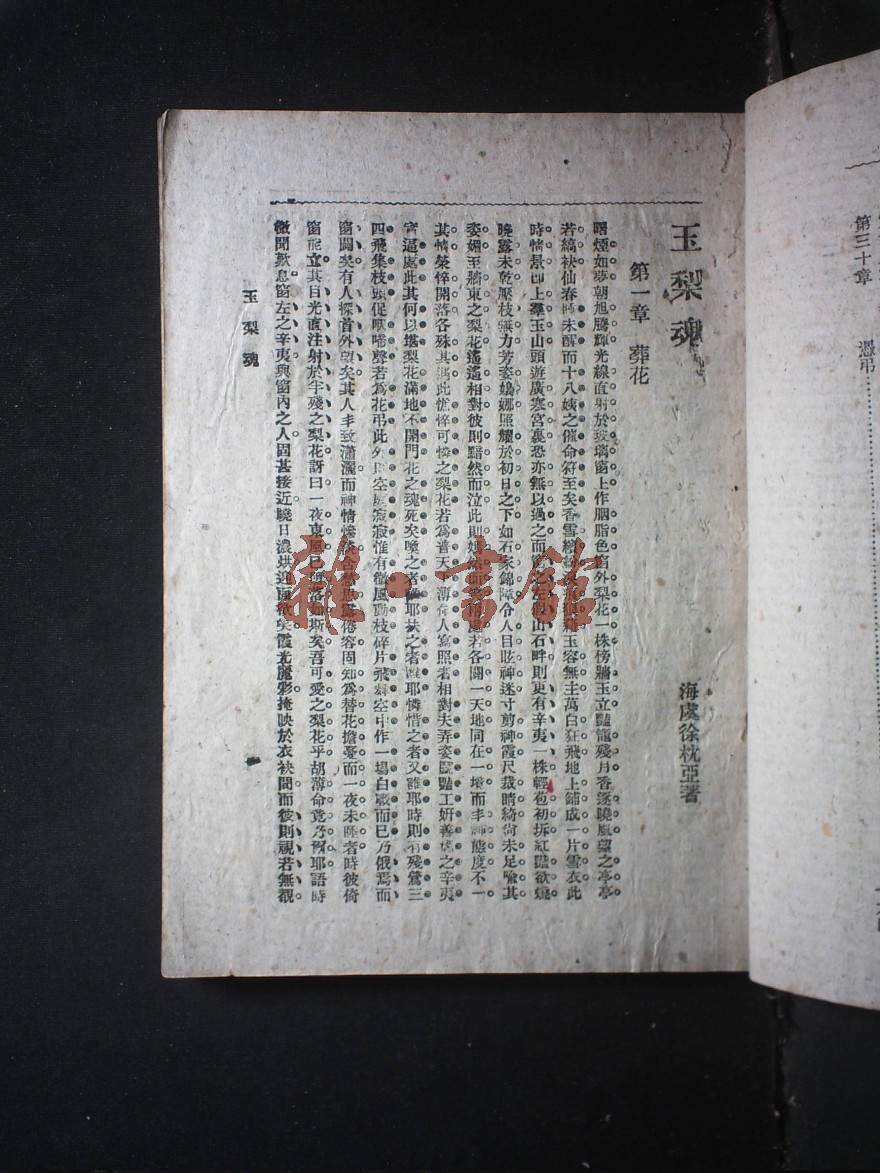 第三十章 憑弔
玉梨魂
海虞徐枕亞著
第一章 葬花
曙煙如夢朝旭騰輝光線直射於玻璃窗上作胭脂色窗外梨花一株傍牆玉立豔籠殘月香逐曉風望之亭亭
若縞袂仙春睡未醒而十八姨之催命符至矣香雪繽紛 玉容無主萬白狂飛地上鋪成一片雪衣此
時情景即上羣玉山頭遊廣寒宮裏恐亦無以過之而窗之左假山石畔則更有辛夷一株輕苞初拆紅豔欲燒
曉露未乾壓枝無力芳姿嬝娜照耀於初日之下如石家錦障令人目眩神迷寸剪神霞尺裁晴綺尚未足喻其
姿媚至牆東之梨花遙遙相對彼則黯然而泣此則嫣然而 若各闢一天地同在一境而丰神態度不一
其情榮悴開落各殊其遇此憔悴可憐之梨花若爲普天下薄命人寫照者相對夫弄姿鬬豔工妍善媚之辛夷
實逼處此其何以堪梨花滿地不開門花之魂死矣喚之者誰耶扶之者誰耶憐惜之者又誰耶時則有殘鶯三
四飛集枝頭促咽啼聲若爲花弔此外則空庭寂寂惟有微風動枝碎片飛舞空中作一場白戰而已乃俄焉而
窗闢矣有人探首外望矣其人丰致瀟灑而神情慘淡含愁思露倦容固知爲替花擔憂而一夜未睡者時彼倚
窗而立其目光直注射於半殘之梨花訝曰一夜東風已零落如斯矣吾可愛之梨花乎胡薄命竟乃爾耶語時
微聞歎息窗左之辛夷與窗內之人固甚接近曉日濃烘迎面欲笑霞光麗彩掩映於衣袂間而彼則視若無覩
玉梨魂
雜·書館